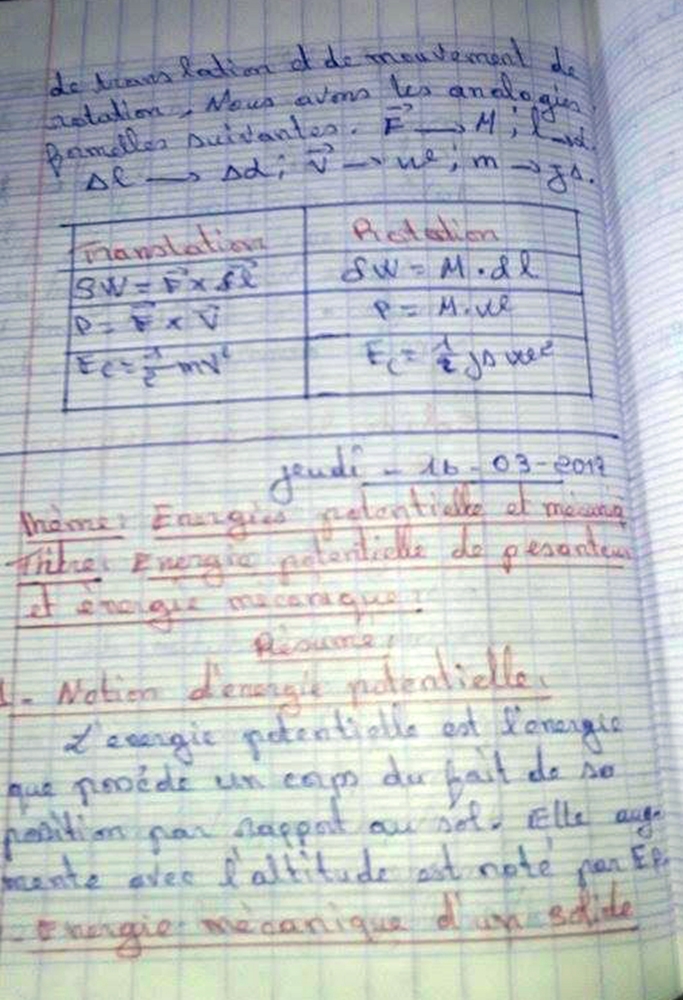 de translation et de mouvement de
rotation. Nous avons les analogies
formelles suivantes. F⃗ → M ; l → α.
Δl → Δα ; V⃗ → we ; m → JΔ.
Translation Rotation
δW = F⃗ × δl⃗ δW = M . dl
P = F⃗ × V⃗ P = M . we
Ec = 1/2 mV² Ec = 1/2 JΔ we²
jeudi - 16 - 03 - 2017
Thème: Energies potentielle et mécaniq
Titre: Energie potentielle de pesanteur
et énergie mécanique.
Résumé:
1 - Notion d'énergie potentielle.
L'énergie potentielle est l'énergie
que procède un corps du fait de sa
position par rapport au sol. Elle aug-
mente avec l'altitude est noté par Ep.
- Energie mécanique d'un solide